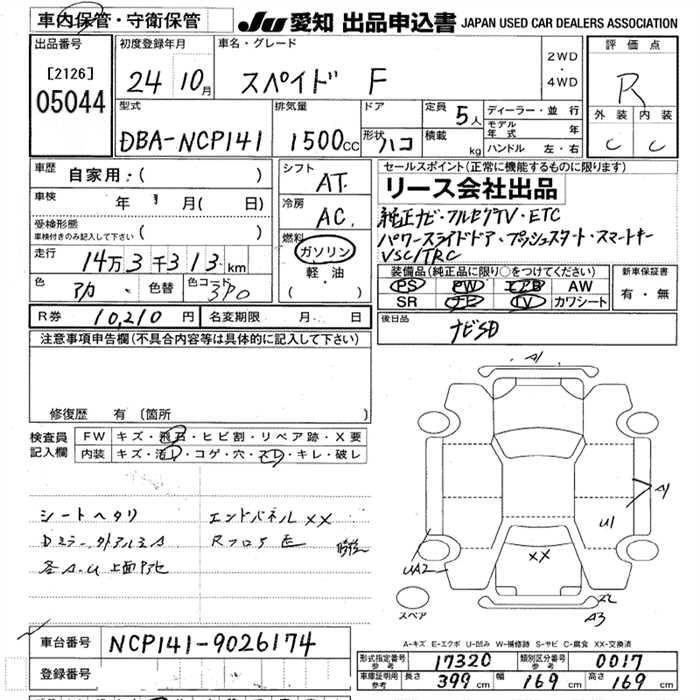 車内保管・守衛保管
JU 愛知 出品申込書 JAPAN USED CAR DEALERS ASSOCIATION
出品番号 初度登録年月 車名・グレード 評価点
[2126]
05044
24 10月 スペイド F
2WD
・
4WD
R
外装 内装
C C
型式 排気量 ドア 定員 5人 ディーラー・並行
DBA-NCP141 1500cc
形状 ハコ 積載 kg
モデル年式 年
ハンドル 左・右
車歴 自家用:( )
車検 年 月( 日)
受検形態
車検付きのみ記入して下さい ( )
走行 14万3千313km
色 アカ 色替 色コード 3P0
シフト AT
冷房 AC
燃料 ガソリン
軽・油
( )
セールスポイント(正常に機能するものに限ります)
リース会社出品
純正ナビ・フルセグTV・ETC
パワースライドドア・プッシュスタート・スマートキー
VSC/TRC
装備品(純正品に限り○をつけてください)
PS PW エアB AW
SR ナビ TV カワシート
新車保証書
有・無
後日品
ナビSD
R券 10,210円 名変期限 月 日
注意事項申告欄(不具合内容等は具体的に記入して下さい)
修復歴 有(箇所 )
検査員記入欄
FW キズ・飛石・ヒビ割・リペア跡・X要
内装 キズ・汚レ・コゲ・穴・スレ・キレ・破レ
シートヘタリ エンドパネルXX
A1
A1
U1
UA2
XX
A3
スペア
A-キズ E-エクボ U-凹み W-補修跡 S-サビ C-腐食 XX-交換済
車台番号 NCP141-9026174
登録番号
形式指定番号 参考 17320 類別区分番号 参考 0017
車庫証明用 参考 長さ 399cm 幅 169cm 高さ 169cm